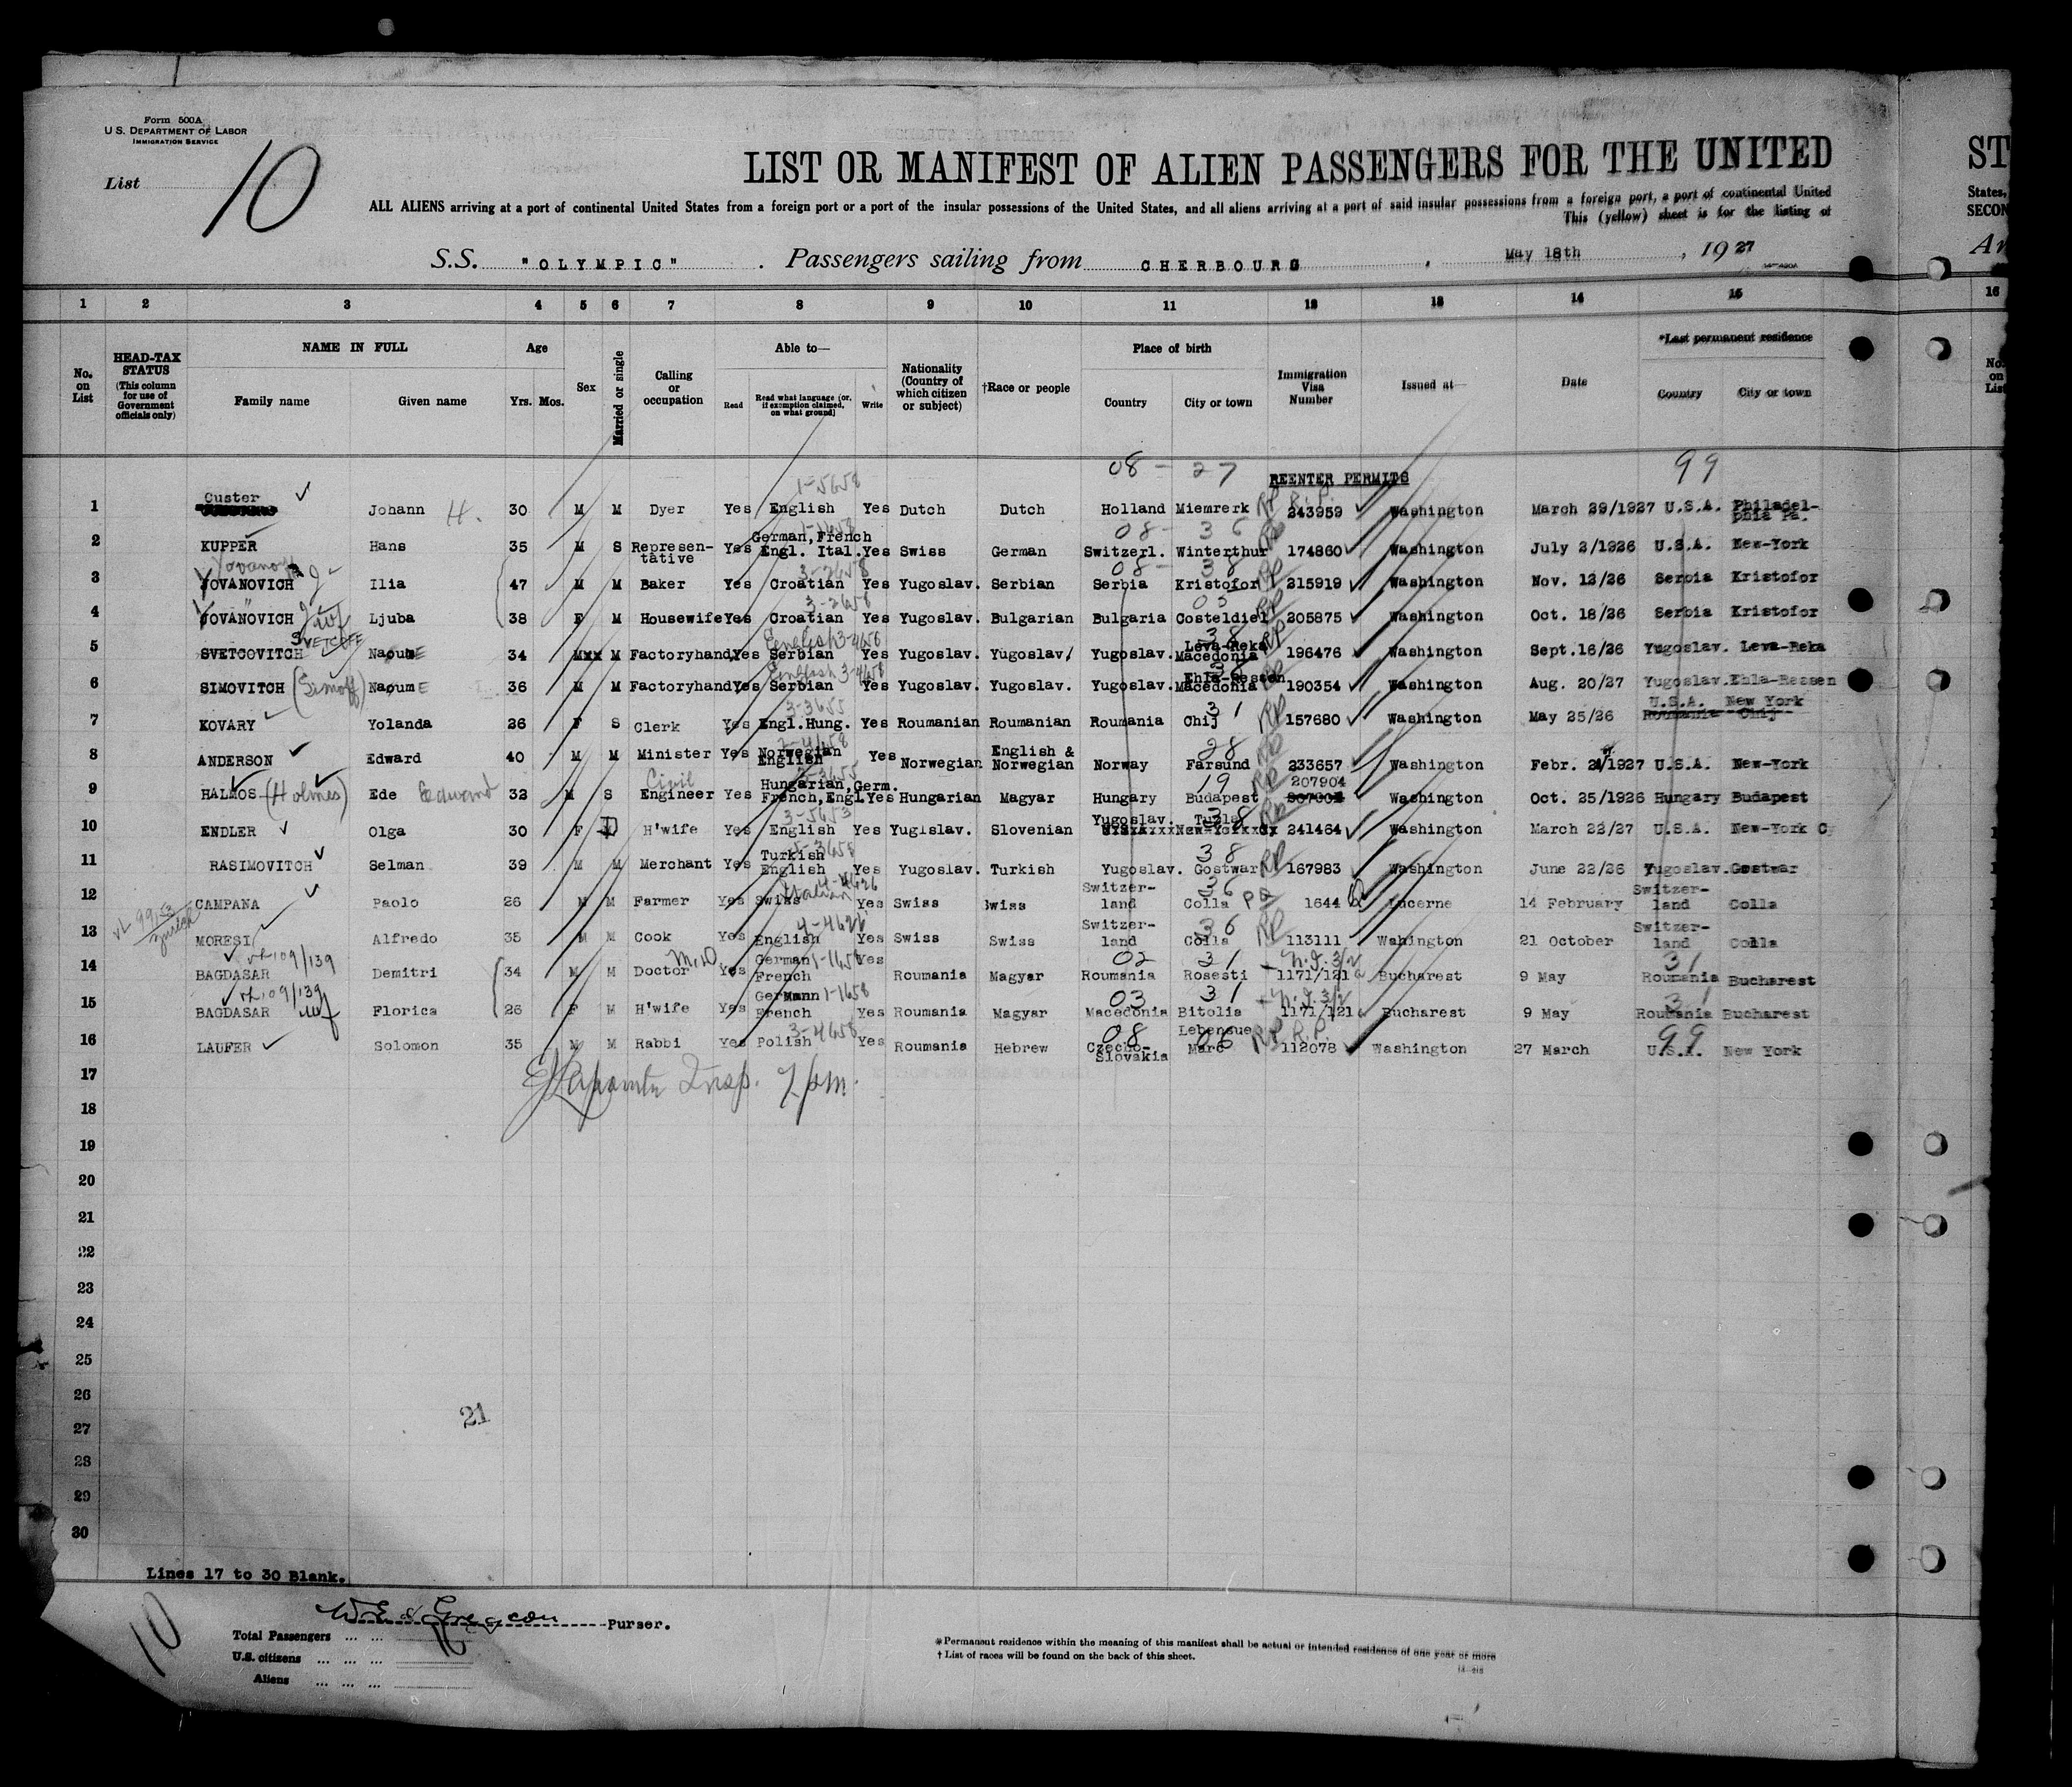 Form 500A
U.S. DEPARTMENT OF LABOR
IMMIGRATION SERVICE
List 10
LIST OR MANIFEST OF ALIEN PASSENGERS FOR THE UNITED
ST
ALL ALIENS arriving at a port of continental United States from a foreign port or a port of the insular possessions of the United States, and all aliens arriving at a port of said insular possessions from a foreign port, a port of continental United
States,
This (yellow) sheet is for the listing of
SECON
S.S. "OLYMPIC" . Passengers sailing from CHERBOURG , May 18th , 19 27
1 2 3 4 5 6 7 8 9 10 11 12 13 14 15 16
No. on List
HEAD-TAX STATUS (This column for use of Government officials only)
NAME IN FULL
Family name Given name
Age
Yrs. Mos.
Sex
Married or single
Calling or occupation
Able to—
Read Read what language (or, if exemption claimed, on what ground) Write
Nationality (Country of which citizen or subject)
†Race or people
Place of birth
Country City or town
Immigration Visa Number
Issued at—
Date
*Last permanent residence
Country City or town
No. on List
08 - 27 99
REENTER PERMITS
1-5658
1 Custer Johann H. 30 M M Dyer Yes English Yes Dutch Dutch Holland Miemrerk RP R.P. 243959 Washington March 29/1927 U.S.A. Philadelphia Pa.
1-1658 08- 36
2 KUPPER Hans 35 M S Representative Yes German, French Engl. Ital. Yes Swiss German Switzerl. Winterthur RP 174860 Washington July 2/1926 U.S.A. New-York
Yovanov 3-2658 08- 38
3 JOVANOVICH Ilia 47 M M Baker Yes Croatian Yes Yugoslav. Serbian Serbia Kristofor RP 215919 Washington Nov. 12/26 Serbia Kristofor
3-2658 05
4 JOVANOVICH wf Ljuba 38 F M Housewife Yes Croatian Yes Yugoslav. Bulgarian Bulgaria Costeldiel RP 205875 Washington Oct. 18/26 Serbia Kristofor
SVETCOFF English 3-4658 38
5 SVETCOVITCH Naoume 34 Mxx M Factoryhand Yes Serbian Yes Yugoslav. Yugoslav/ Yugoslav. Leva-Reka Macedonia RP 196476 Washington Sept.16/26 Yugoslav. Leva-Reka
English 3-4658
6 SIMOVITCH (Simoff) Naoum E 36 M M Factoryhand Yes Serbian Yes Yugoslav. Yugoslav. Yugoslav. Ehla-Ressen Macedonia RP 190354 Washington Aug. 20/27 Yugoslav. Ehla-Ressen
3-3655 31 U.S.A. New York
7 KOVARY Yolanda 26 F S Clerk Yes Engl.Hung. Yes Roumanian Roumanian Roumania Chij RP 157680 Washington May 25/26 Roumania Chij
28
8 ANDERSON Edward 40 M M Minister Yes Norwegian English Yes Norwegian English & Norwegian Norway Farsund RP 233657 Washington Febr. 1927 U.S.A. New-York
Civil 19 207904
9 HALMOS (Holmes) Ede Edward 32 M S Engineer Yes Hungarian, Germ. French, Engl. Yes Hungarian Magyar Hungary Budapest RP Washington Oct. 25/1926 Hungary Budapest
3-5653 Yugoslav. Tuzla 38
10 ENDLER Olga 30 F D H'wife Yes English Yes Yugislav. Slovenian RP 241464 Washington March 22/27 U.S.A. New-York C
38
11 RASIMOVITCH Selman 39 M M Merchant Yes Turkish English Yes Yugoslav. Turkish Yugoslav. Gostwar RP 167983 Washington June 22/26 Yugoslav. Gostwar
Italian 4626 36
12 CAMPANA Paolo 26 M M Farmer Yes Swiss Yes Swiss Swiss Switzerland Colla 1644 Lucerne 14 February Switzerland Colla
4-4626 36
13 MORESI Alfredo 35 M M Cook Yes English Yes Swiss Swiss Switzerland Colla RP 113111 Wahington 21 October Switzerland Colla
109/139 M.D. 1-1658 02 31 N.I. 3/2 31
14 BAGDASAR Demitri 34 M M Doctor Yes German French Yes Roumania Magyar Roumania Rosesti 1171/121 Bucharest 9 May Roumania Bucharest
109/139 1-1658 03 31 N.I. 3/2 31
15 BAGDASAR wf Florica 26 F M H'wife Yes Germann French Yes Roumania Magyar Macedonia Bitolia 1171/121 Bucharest 9 May Roumania Bucharest
3-4658 08 06 99
16 LAUFER Solomon 35 M M Rabbi Yes Polish Yes Roumania Hebrew Czecho-Slovakia Marc RP R.P. 112078 Washington 27 March U.S.A. New York
17 Insp. 7 pm.
18
19
20
21
22
23
24
25
26
21
27
28
29
30
Lines 17 to 30 Blank.
10
Purser.
Total Passengers ... ... 16
U.S. citizens ... ... ...
Aliens ... ... ...
*Permanent residence within the meaning of this manifest shall be actual or intended residence of one year or more
† List of races will be found on the back of this sheet.